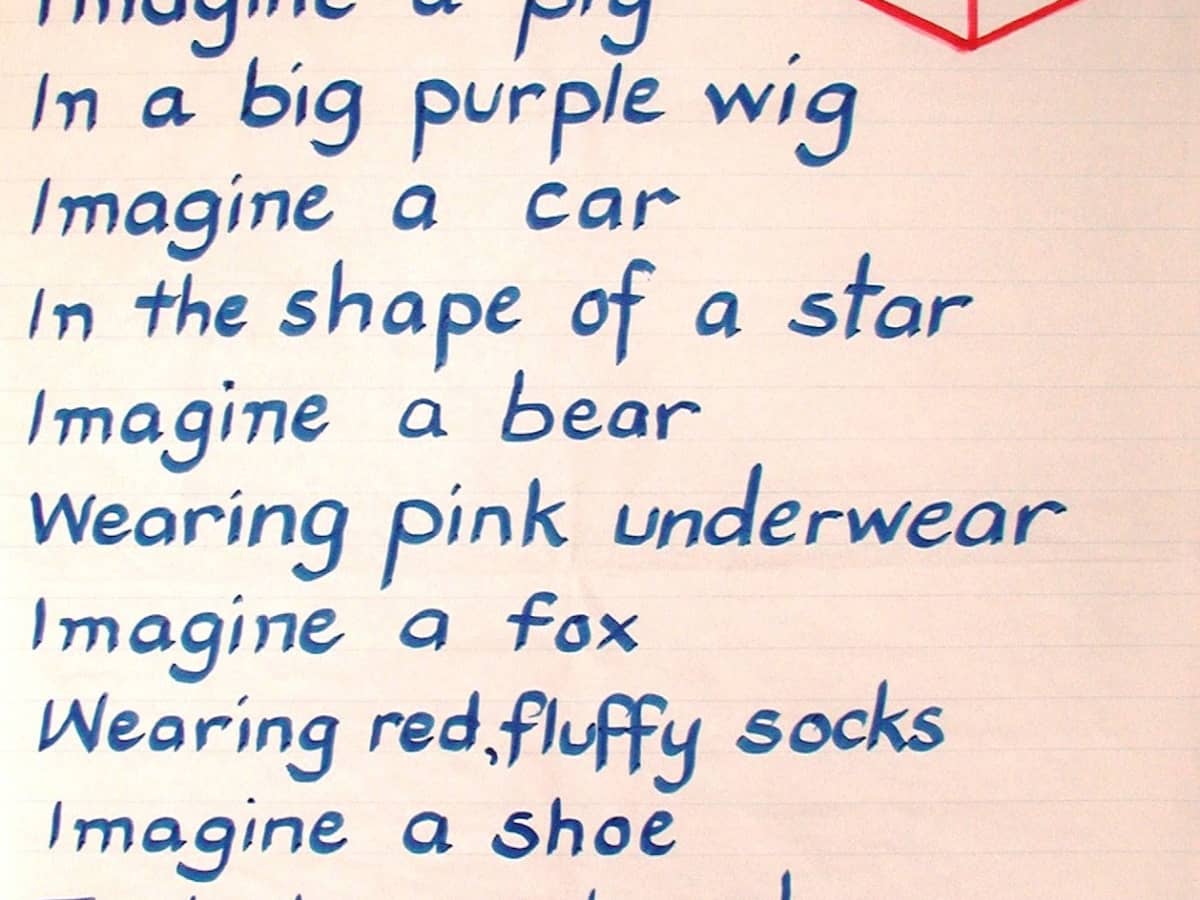 Imagine a pig
In a big purple wig
Imagine a car
In the shape of a star
Imagine a bear
Wearing pink underwear
Imagine a fox
Wearing red, fluffy socks
Imagine a shoe